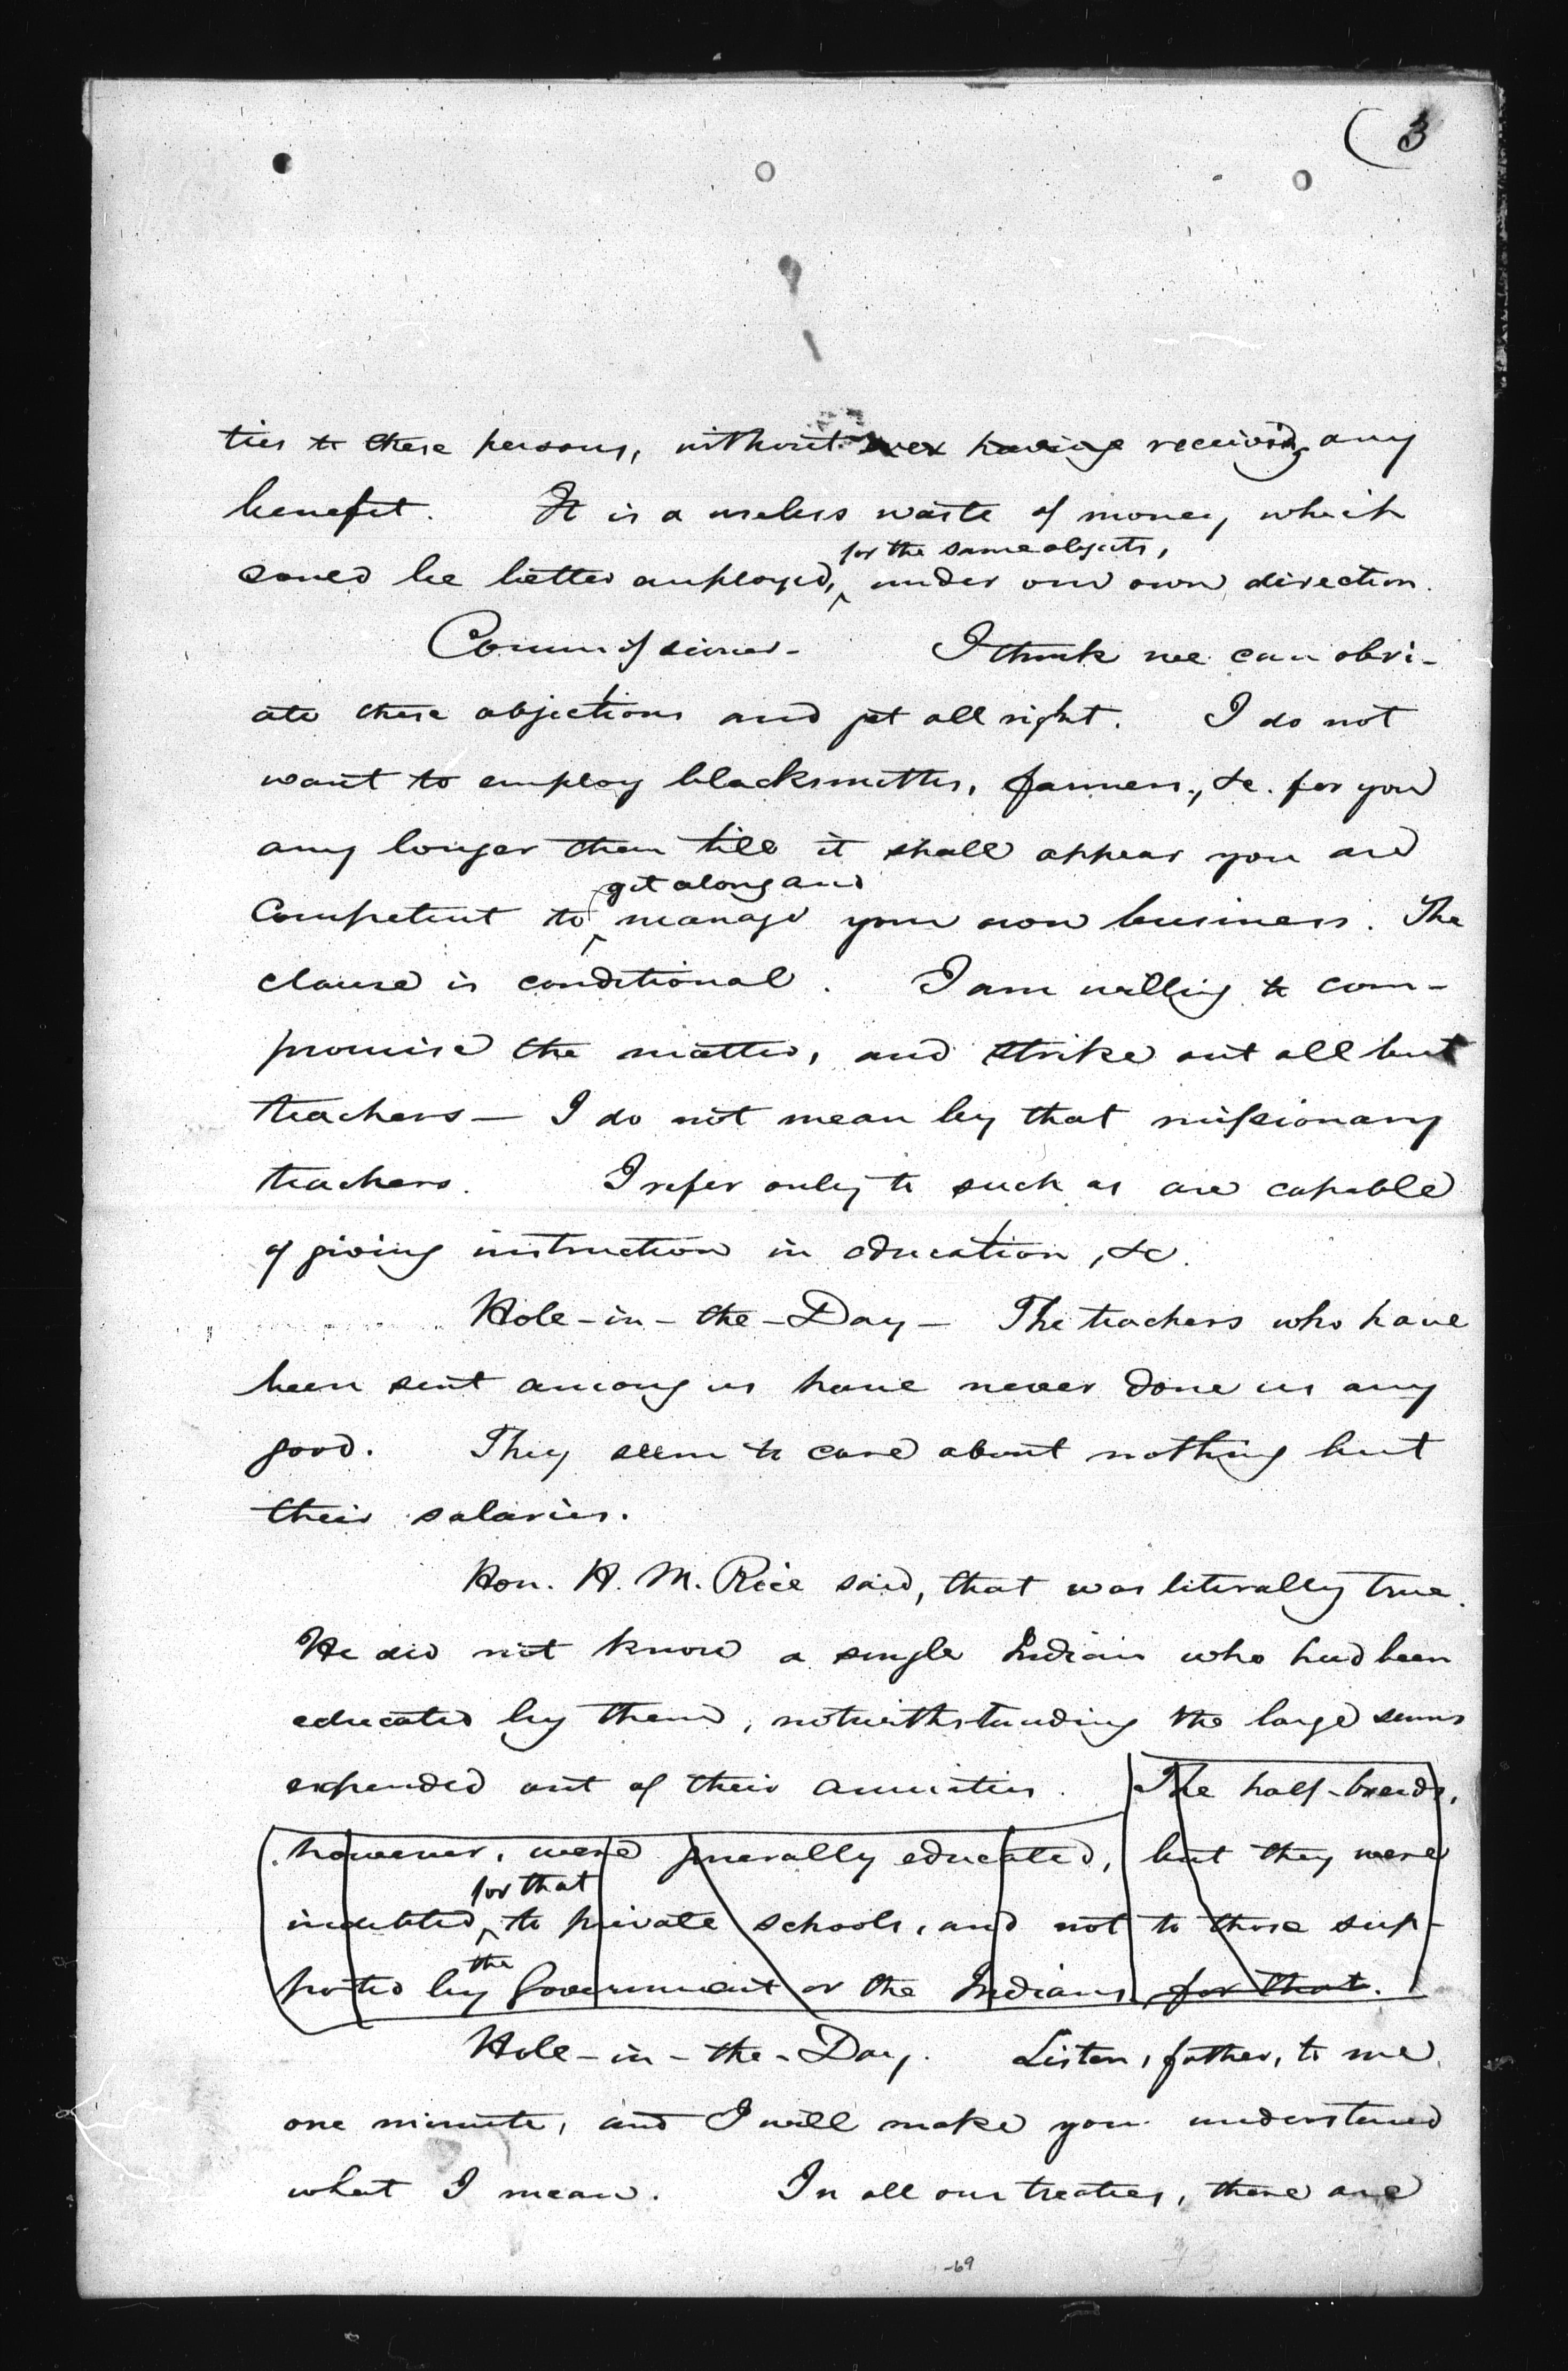 (3
ties to these persons, without ever having receiving any
benefit. It is a useless waste of money, which
could be better employed, for the same objects, under our own direction.
Commissioner - I think we can obvi-
ate these objections and get all right. I do not
want to employ blacksmiths, farmers, &c. for you
any longer than till it shall appear you are
competent to get along and manage your own business. The
clause is conditional. I am willing to com-
promise the matter, and strike out all but
teachers — I do not mean by that missionary
teachers. I refer only to such as are capable
of giving instruction in education, &c.
Hole-in-the-Day — The teachers who have
been sent among us have never done us any
good. They seem to care about nothing but
their salaries.
Hon. H. M. Rice said, that was literally true.
He did not know a single Indian who had been
educated by them, notwithstanding the large sums
expended out of their annuities. The half-breeds,
however, were generally educated, but they were
indebted for that to private schools, and not to those sup-
ported by the Government or the Indians for that.
Hole-in-the-Day. Listen, father, to me
one minute, and I will make you understand
what I mean. In all our treaties, there are
-69